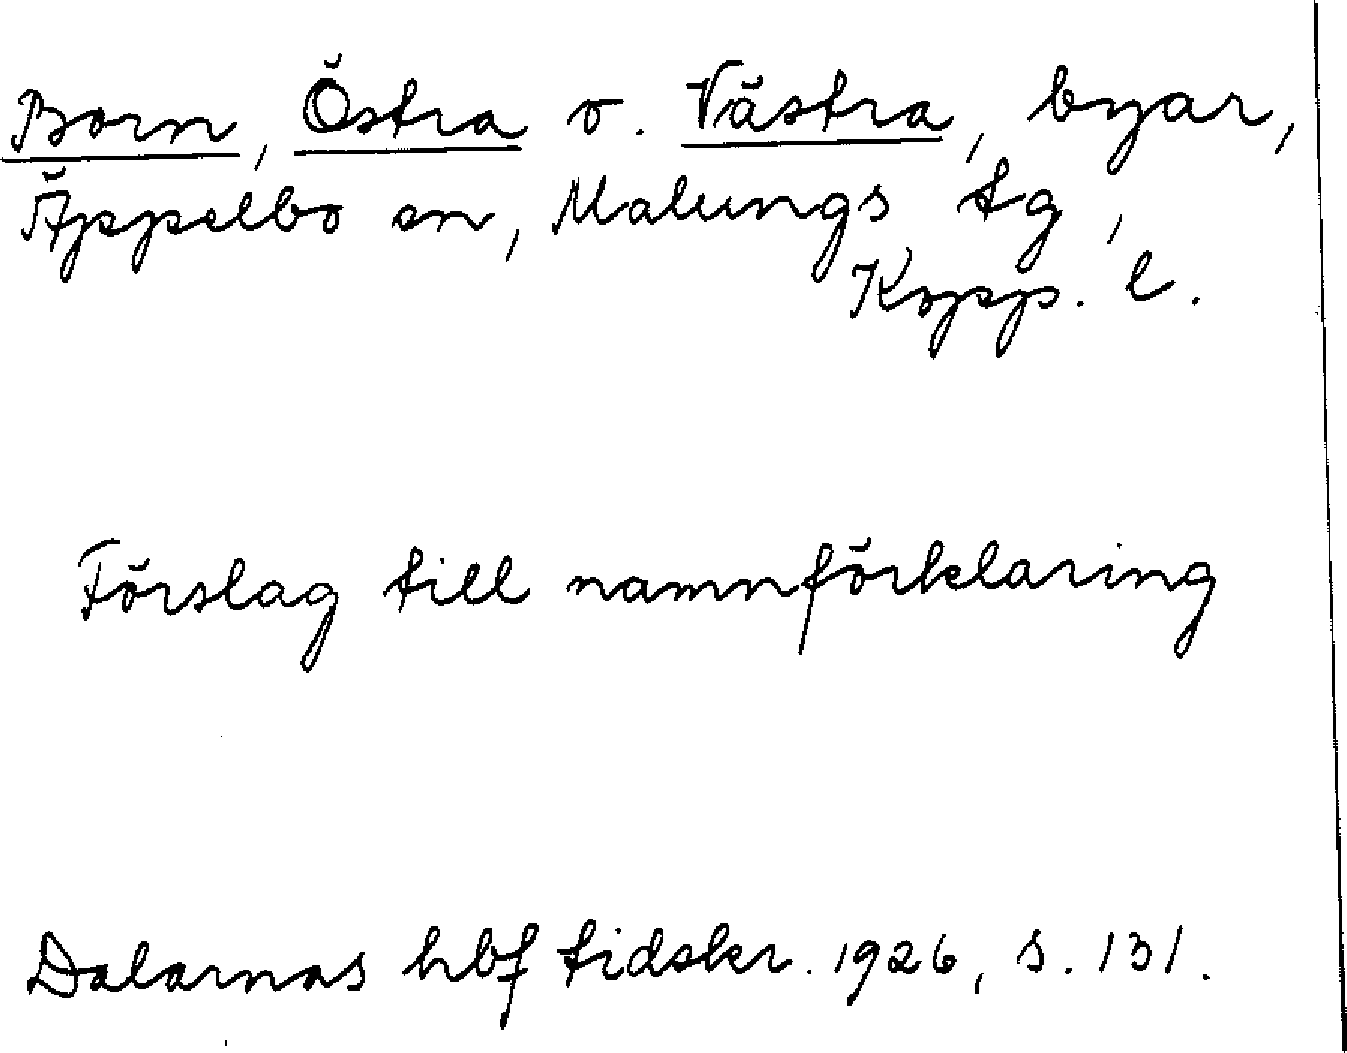 Born, Östra o. Västra, byar,
Äppelbo sn, Malungs tg,
Kopp. l.
Förslag till namnförklaring
Dalarnas hbf tidskr. 1926, s. 131.